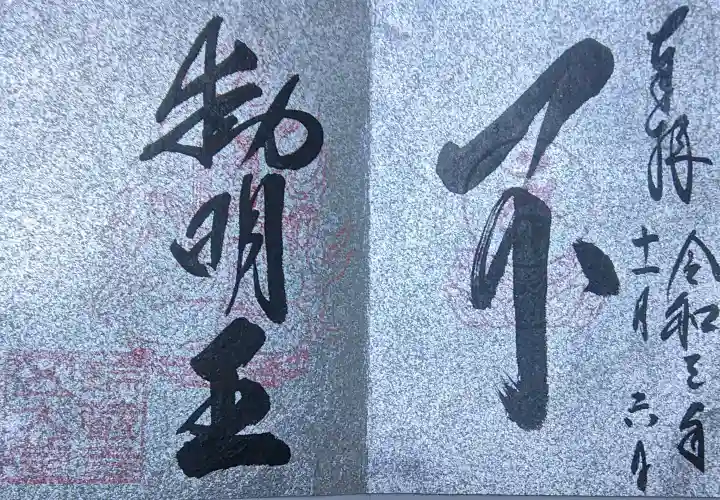 奉拝
令和三年
十一月六日
不
動明王